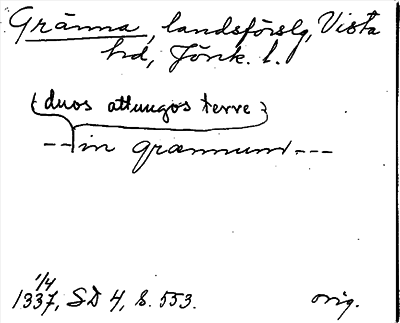 Gränna, landsförslg, Vista
hd, Jönk. l.
{duos attungos terre}
--in grænnum---
1/4
1337, SD 4, s. 553. orig.